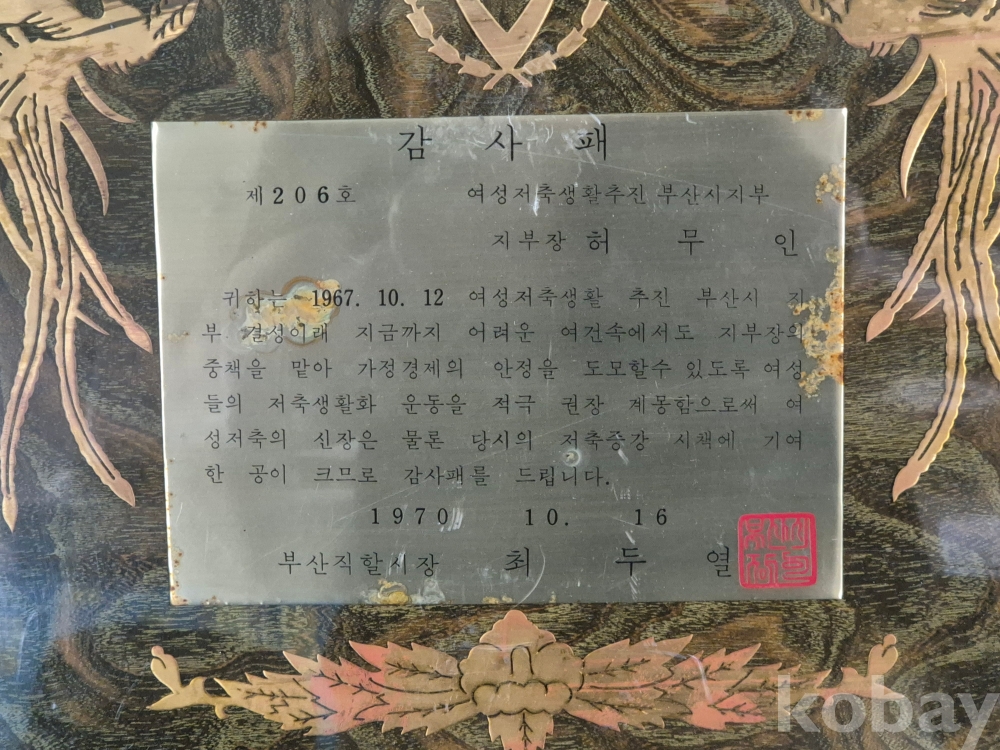 감 사 패
제 206 호 여성저축생활추진 부산시지부
지부장 허 무 인
귀하는 1967. 10. 12 여성저축생활 추진 부산시 지
부 결성이래 지금까지 어려운 여건속에서도 지부장의
중책을 맡아 가정경제의 안정을 도모할수 있도록 여성
들의 저축생활화 운동을 적극 권장 계몽함으로써 여
성저축의 신장은 물론 당시의 저축증강 시책에 기여
한 공이 크므로 감사패를 드립니다.
1970 10. 16
부산직할시장 최 두 열
kobay